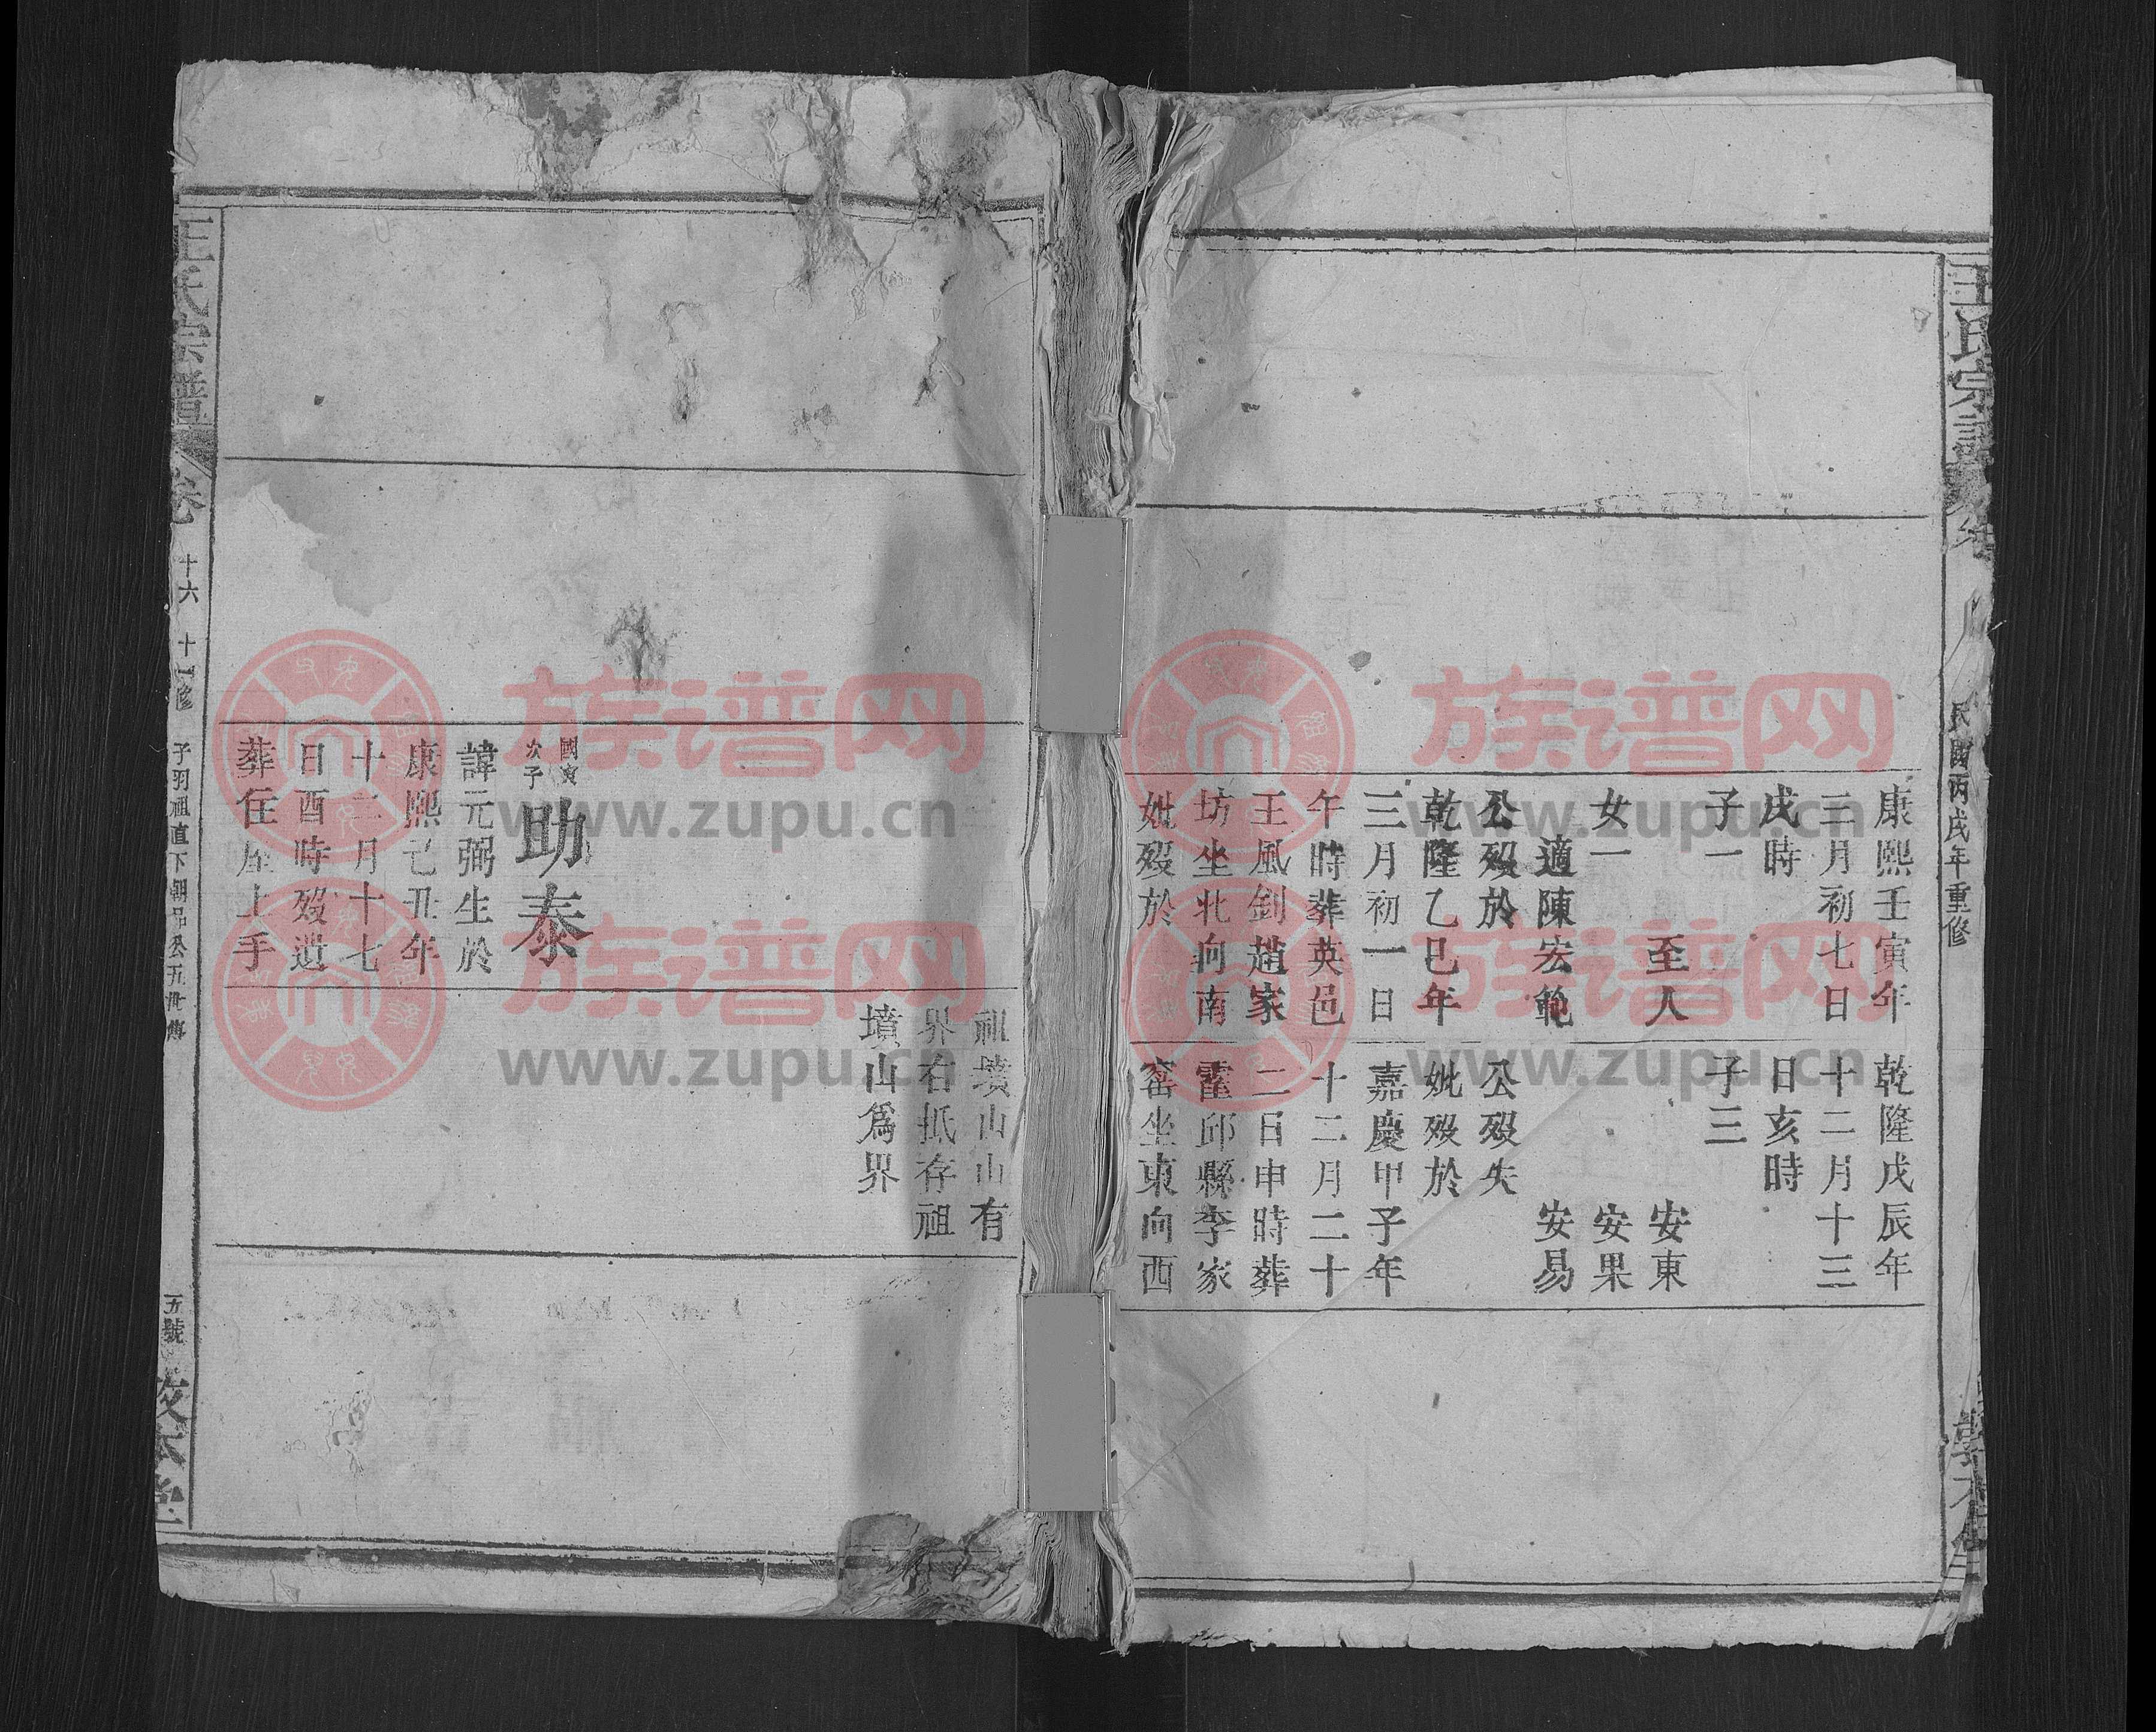 王氏宗譜
民國丙戌年重修
康熙壬寅年
三月初七日
戌時
子一
至人
女一
適陳宏範
公歿於
乾隆乙巳年
三月初一日
午時葬英邑
王風劍趙家
坊坐北向南
妣歿於
乾隆戊辰年
十二月十三
日亥時
子三
安東
安果
安易
公歿失
妣歿於
嘉慶甲子年
十二月二十
二日申時葬
霍邱縣李家
窑坐東向西
祖墳山山有
界右抵存祖
墳山為界
國寅
次子
助泰
諱元弼生於
康熙己丑年
十二月十七
日酉時歿遺
葬住屋上手
王氏宗譜
卷
十六
十一修
子羽祖直下朝品公五世傳
五號
敦本堂
族谱网
www.zupu.cn
族谱网
www.zupu.cn
族谱网
www.zupu.cn
族谱网
www.zupu.cn